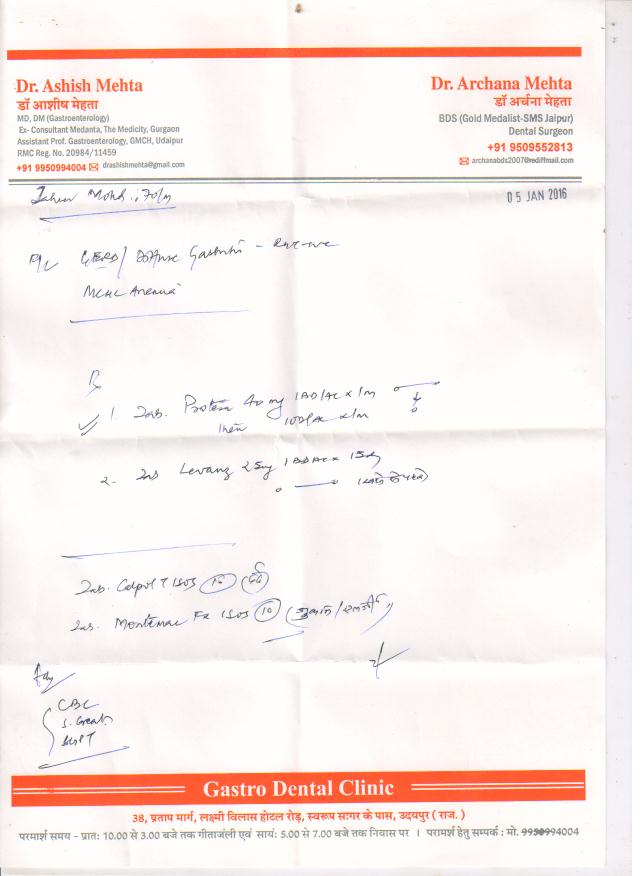 Dr. Ashish Mehta
डॉ आशीष मेहता
MD, DM (Gastroenterology)
Ex- Consultant Medanta, The Medicity, Gurgaon
Assistant Prof. Gastroenterology, GMCH, Udaipur
RMC Reg. No. 20984/11459
+91 9950994004 drashishmehta@gmail.com
Dr. Archana Mehta
डॉ अर्चना मेहता
BDS (Gold Medalist-SMS Jaipur)
Dental Surgeon
+91 9509552813
archanabds2007@rediffmail.com
Mohd.
05 JAN 2016
GERD / Gastritis -
Rx
1. Tab. 40 mg 1 BD/AC x 1m
then 1 OD/AC x 1m
2. Tab Levanz 25mg 1 BD AC x 15d
Tab. Calpol T 1 SOS
Tab. Montemac Fx 1 SOS 10
Adv
CBC
S. Creat.
SGPT
Gastro Dental Clinic
38, प्रताप मार्ग, लक्ष्मी विलास होटल रोड़, स्वरूप सागर के पास, उदयपुर ( राज. )
परामर्श समय – प्रातः 10.00 से 3.00 बजे तक गीतांजली एवं सायं: 5.00 से 7.00 बजे तक निवास पर । परामर्श हेतु सम्पर्क : मो. 9950994004